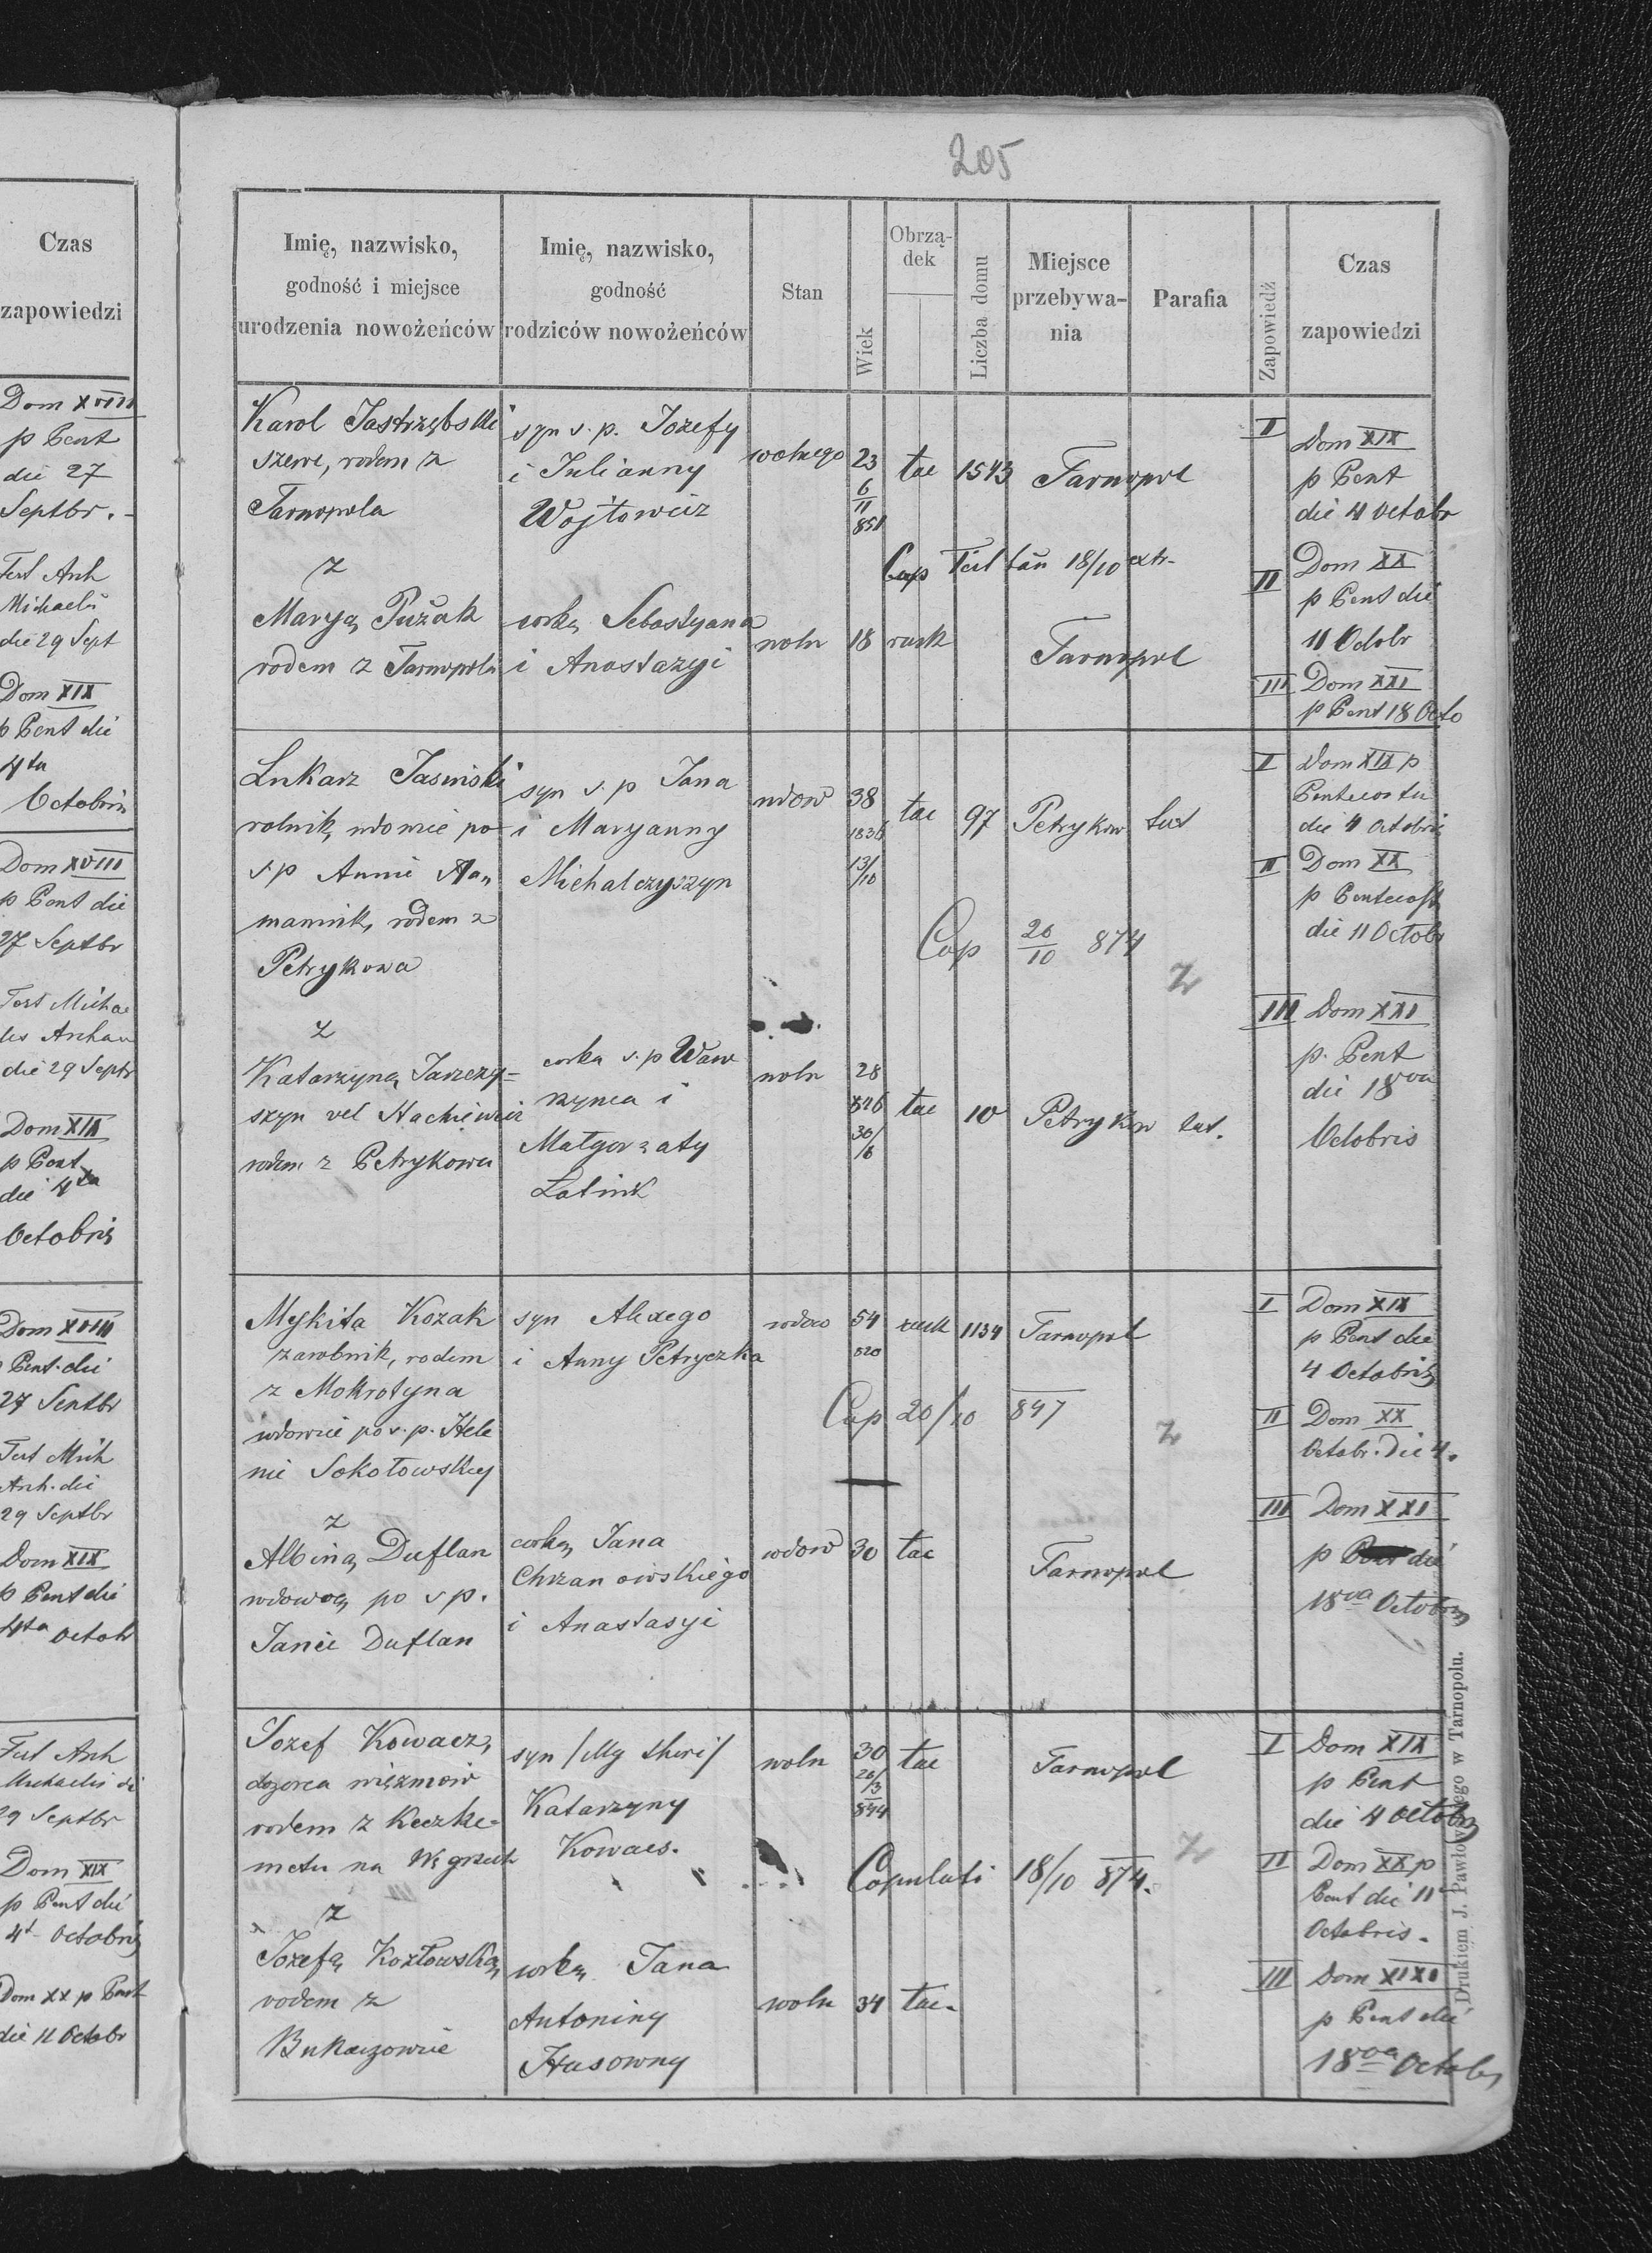 Czas
zapowiedzi
Dom XVIII
p Pent
die 27
Septbr.
Fest Arch
Michaelis
die 29 Sept
Dom XIX
p Pent die
4ta
Octobris
Dom XVIII
p Pent die
27 Septbr
Fest Micha
lis Archan
die 29 Septr
Dom XIX
p Pent
die 4ta
Octobris
Dom XVIII
Pent. die
27 Septbr
Fest Mich
Arch. die
29 Septbr
Dom XIX
p Pent die
4ta Octob
Fest Arch
Michaelis di
29 Septbr
Dom XIX
p Pent die
4t Octobris
Dom XX p Pent
die 11 Octobr
205
Imię, nazwisko,
godność i miejsce
urodzenia nowożeńców
Imię, nazwisko,
godność
rodziców nowożeńców
Stan
Wiek
Obrzą-
dek
Liczba domu
Miejsce
przebywa-
nia
Parafia
Zapowiedź
Czas
zapowiedzi
Karol Jastrzębski
szewc, rodem z
Tarnopola
syn s. p. Jozefy
i Julianny
Wojtowicz
wolnego
23
6
11
851
łac
1543
Tarnopol
I
Dom XIX
p Pent
die 4 Octobr
z
Cop Test 18/10 extr.
II
Dom XX
p Pent die
11 Octobr
Maryą Pużak
rodem z Tarnopola
corką Sebastyana
i Anastazyi
woln
18
rusk
Tarnopol
III
Dom XXI
p Pent 18 Octo
Łukasz Jasinski
rolnik, wdowie po
s.p Annie
rodem z
Petrykowa
syn s. p Jana
i Maryanny
Michalczyszyn
wdow
38
1836
13/
/10
łac
97
Petrykow
tut
I
Dom XIX p
Pentecostu
die 4 Octobris
II
Dom XX
p Pentecost
die 11 Octobr
Cop 20/10 874
z
z
Katarzyną Jarczy=
szyn vel Hackiewicz
rodem z Petrykowa
corka s.p Waw
rzynca i
Małgorzaty
Łotink
woln
28
846
30/
/6
łac
10
Petrykow
tut.
III
Dom XXI
p. Pent
die 18va
Octobris
Mykita Kozak
zarobnik, rodem
z Mokrotyna
wdowie po s. p. Hele
nie Sokołowskiej
syn Alexego
i Anny Petryczka
wdow
54
820
rusk
1134
Tarnopol
I
Dom XIX
p Pent die
4 Octobris
Cop 20/10 847
z
II
Dom XX
Octobr. Die 4.
z
Albiną Duflan
wdową po s p.
Janie Duflan
corką Jana
Chrzanowskiego
i Anastasyi
wdow
30
łac
Tarnopol
III
Dom XXI
p die
18va Octobris
Jozef Kowacz,
dozorca więzniow
rodem z Keczke=
metu na Węgrzech
Katarzyny
Kowacs.
woln
30
26/
/3
844
łac
Tarnopol
I
Dom XIX
p Pent
die 4 Octobris
Copulati 18/10 874.
z
II
Dom XX p
Pent die 11
Octobris.
z
Jozefą Kozłowską,
rodem z
Bukaczowie
corką Jana
Antoniny
Husowny
woln
34
łac.
III
Dom XIXI
p Pent die
18va Octobr
Drukiem J. Pawłowskiego w Tarnopolu.